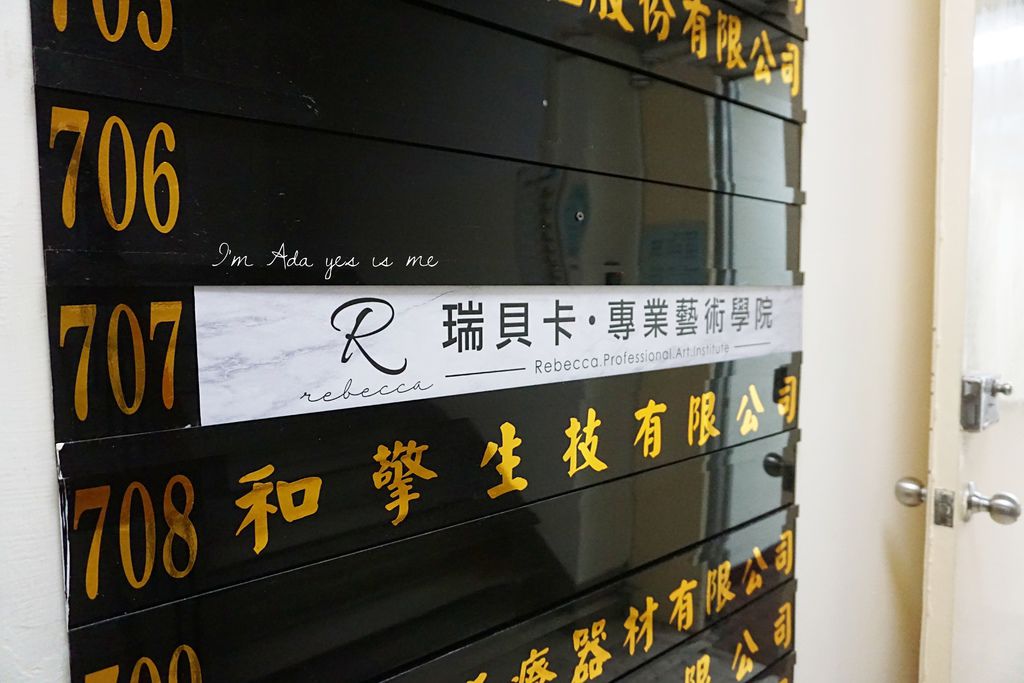 705
股份有限公司
706
I'm Ada yes is me
707
R 瑞貝卡·專業藝術學院
rebecca
Rebecca.Professional.Art.Institute
708 和擎生技有限公司
709
療器材有限公司
限公司